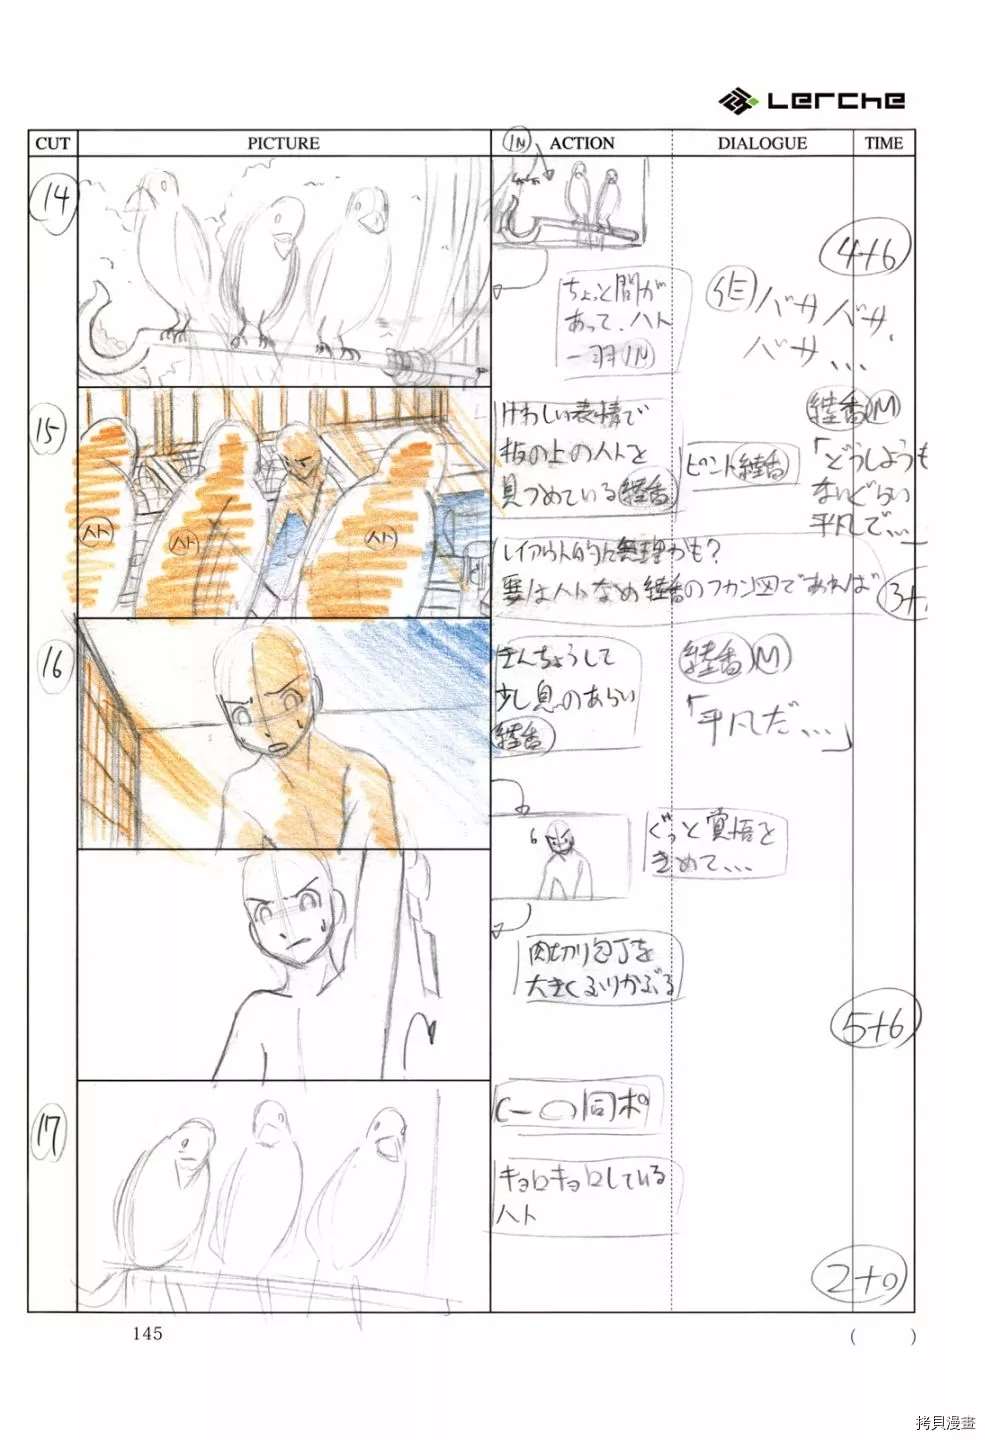 Lerche
CUT
PICTURE
ACTION
DIALOGUE
TIME
14
IN
ちょっと間が
あって、ハト
一羽IN
バサバサ、
バサ、、、
4+6
15
ハト
ハト
ハト
けわしい表情で
板の上のハトを
見つめている
ピント
M
「どうしようも
ないぐらい
平凡で、、、」
レイアウト的に無理かも？
要はハトなめ
のフカン図であれば
3+
16
きんちょうして
少し息のあらい
M
「平凡だ、、、」
ぐっと覚悟を
きめて、、、
肉切り包丁を
大きくふりかぶる
5+6
17
C-
の同ポ
キョロキョロしている
ハト
2+0
145
(     )
拷貝漫畫